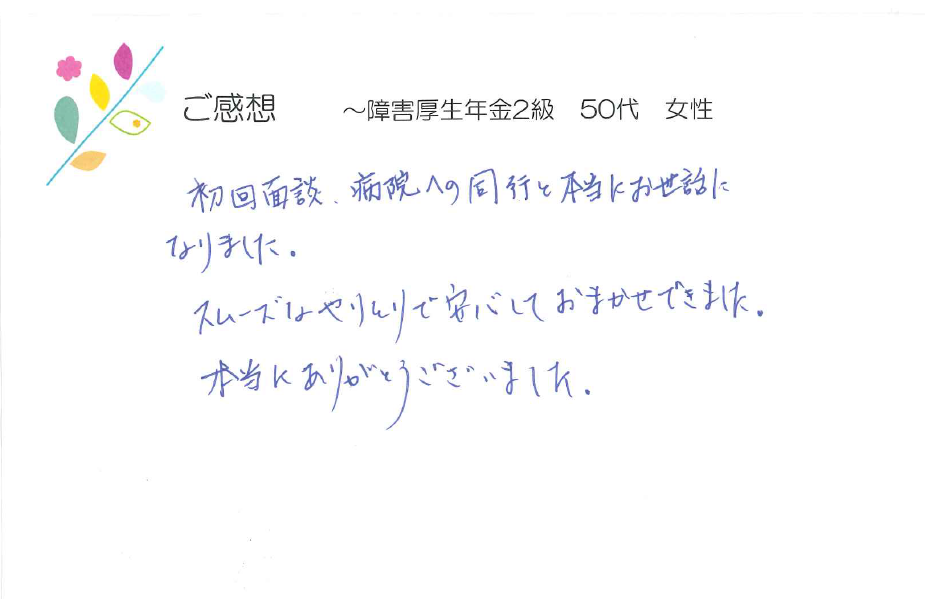 ご感想　～障害厚生年金2級　50代　女性
初回面談、病院への同行と本当にお世話に
なりました。
スムーズなやりとりで安心しておまかせできました。
本当にありがとうございました。